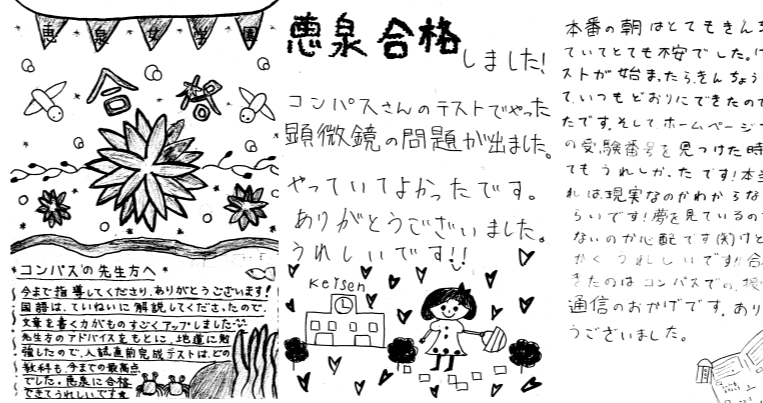 恵泉女学園
合格
*コンパスの先生方へ*
今まで指導してくださり、ありがとうございます!
国語は、ていねいに解説してくださったので、
文章を書く力がものすごくアップしました
先生方のアドバイスをもとに、地道に勉
強したので、入試直前完成テストは、どの
教科も、今までの最高点
でした。恵泉に合格
できてうれしいです★
恵泉合格
しました!
コンパスさんのテストでやった
顕微鏡の問題が出ました。
やっていてよかったです。
ありがとうございました。
うれしいです!!
Keisen
本番の朝はとてもきんち
ていてとても不安でした。
ストが始まったら、きんちょう
て、いつもどおりにできたので
たです。そして、ホームページ
の受験番号を見つけた時
てもうれしかったです!本当
れは現実なのかわからな
らいです!夢を見ているの
ないのか心配です(笑)けど
かくうれしいです!!合
きたのはコンパスでの、
通信のおかげです。あり
うございました。